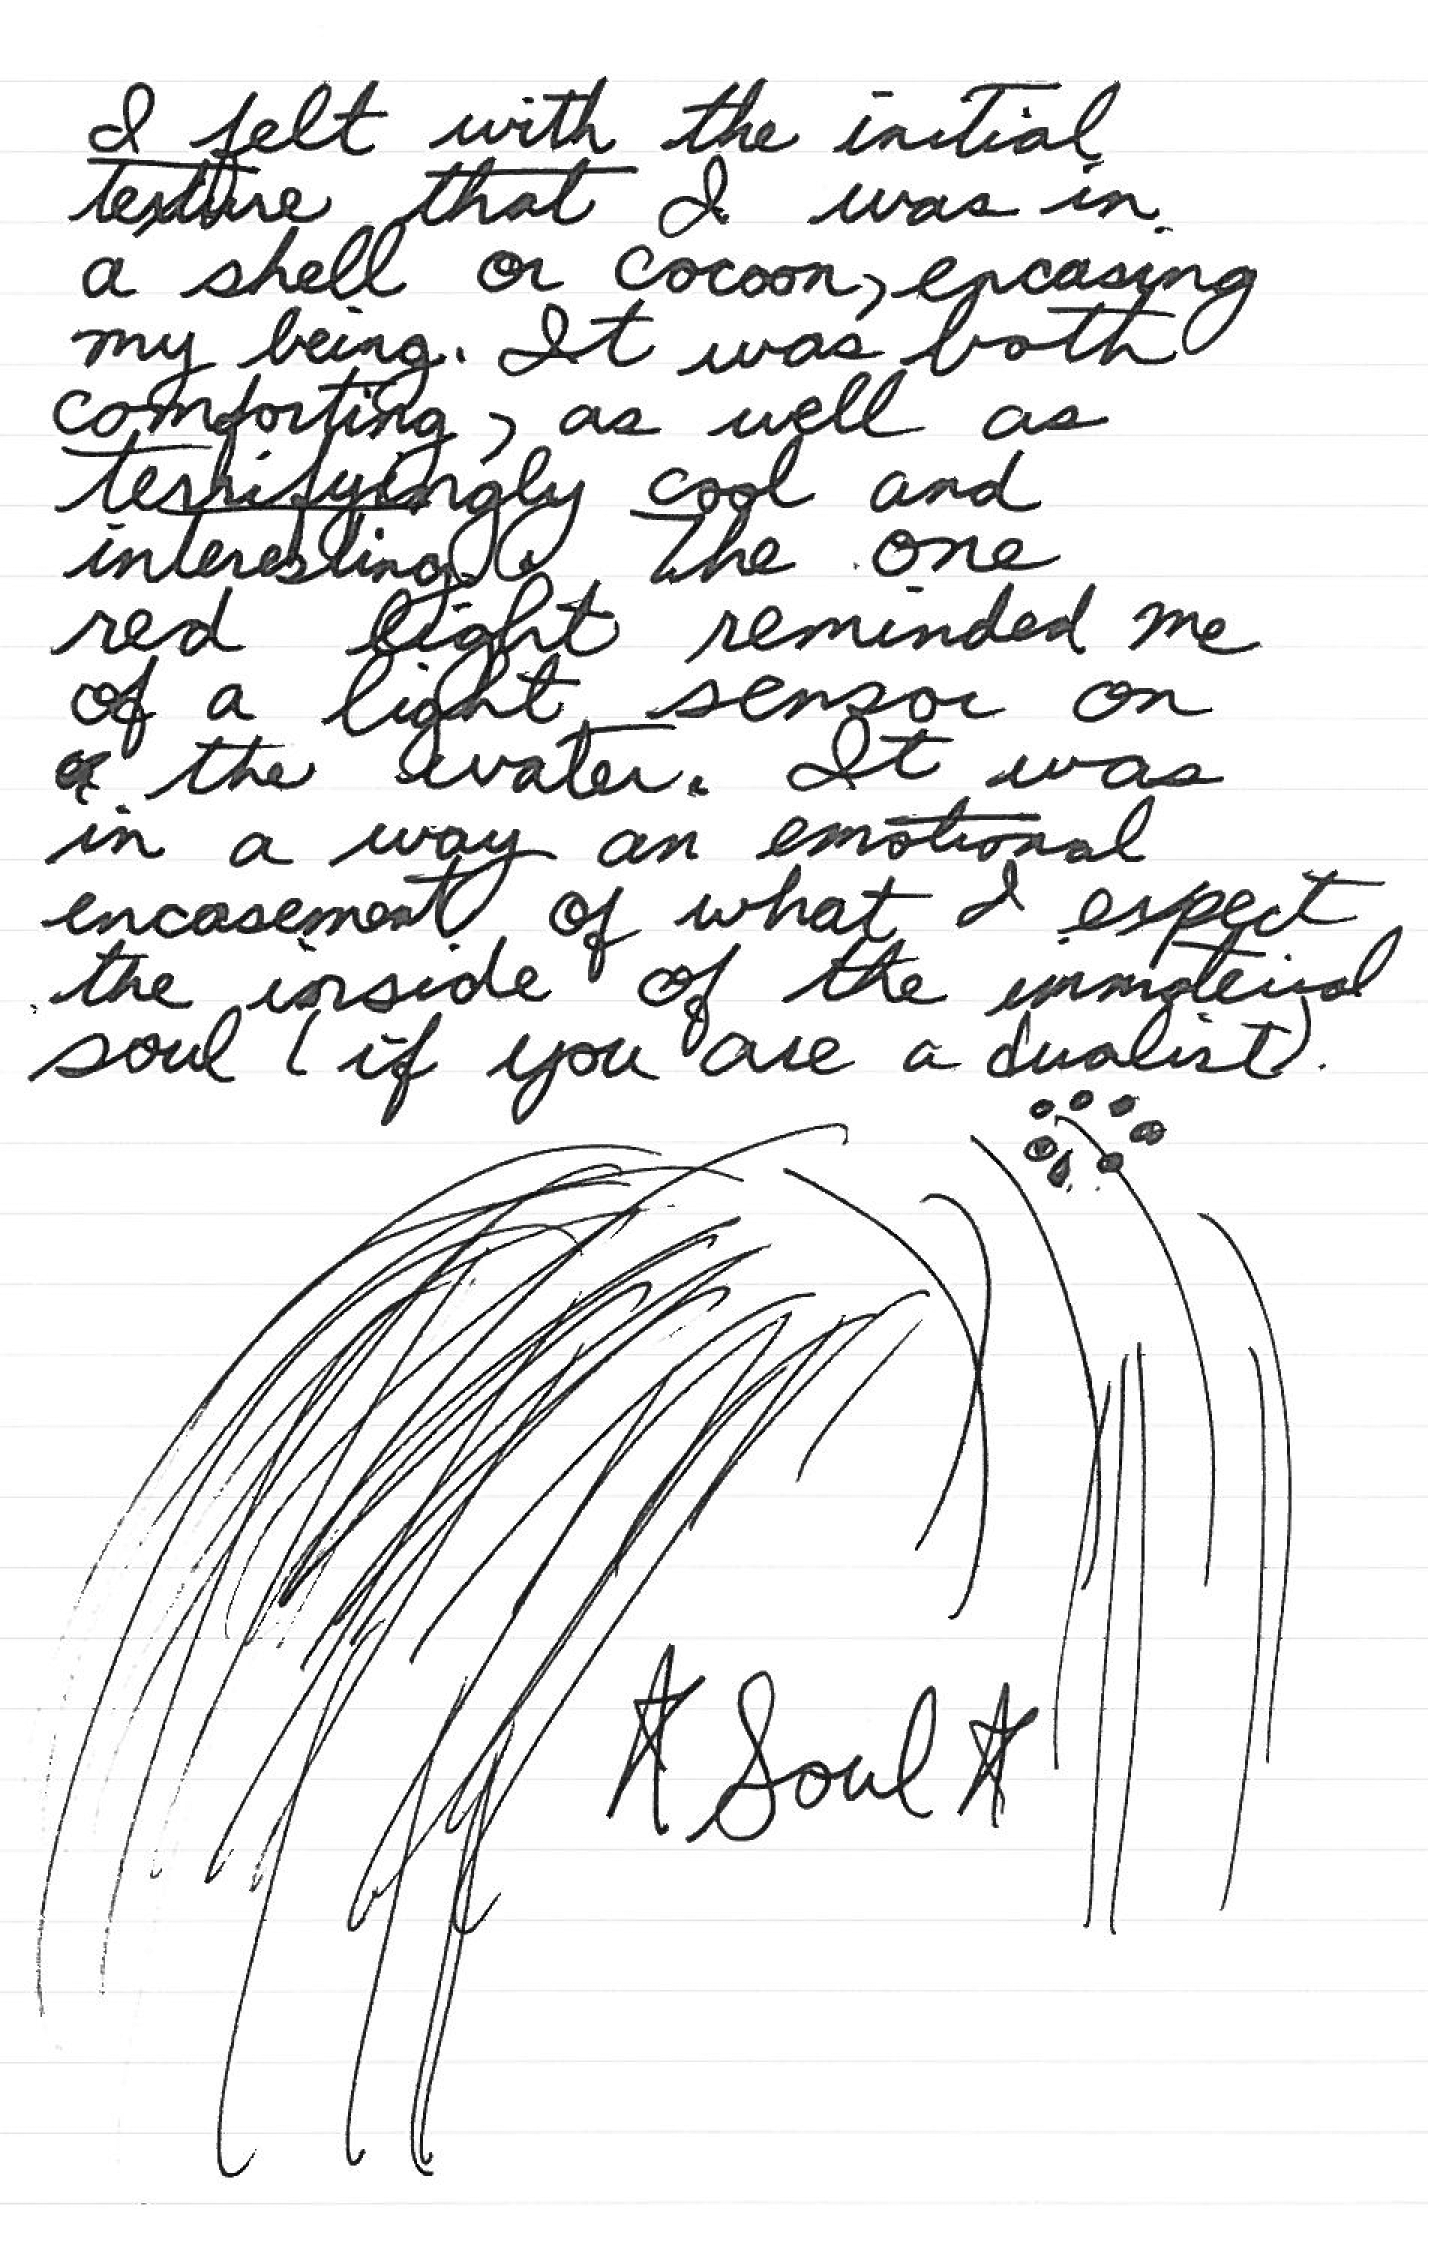 I felt with the initial
texture that I was in
a shell or cocoon, encasing
my being. It was both
comforting, as well as
terrifyingly cool and
interesting. The one
red light reminded me
of a light sensor on
the water. It was
in a way an emotional
encasement of what I expect
the inside of the immaterial
soul (if you are a dualist).
Soul